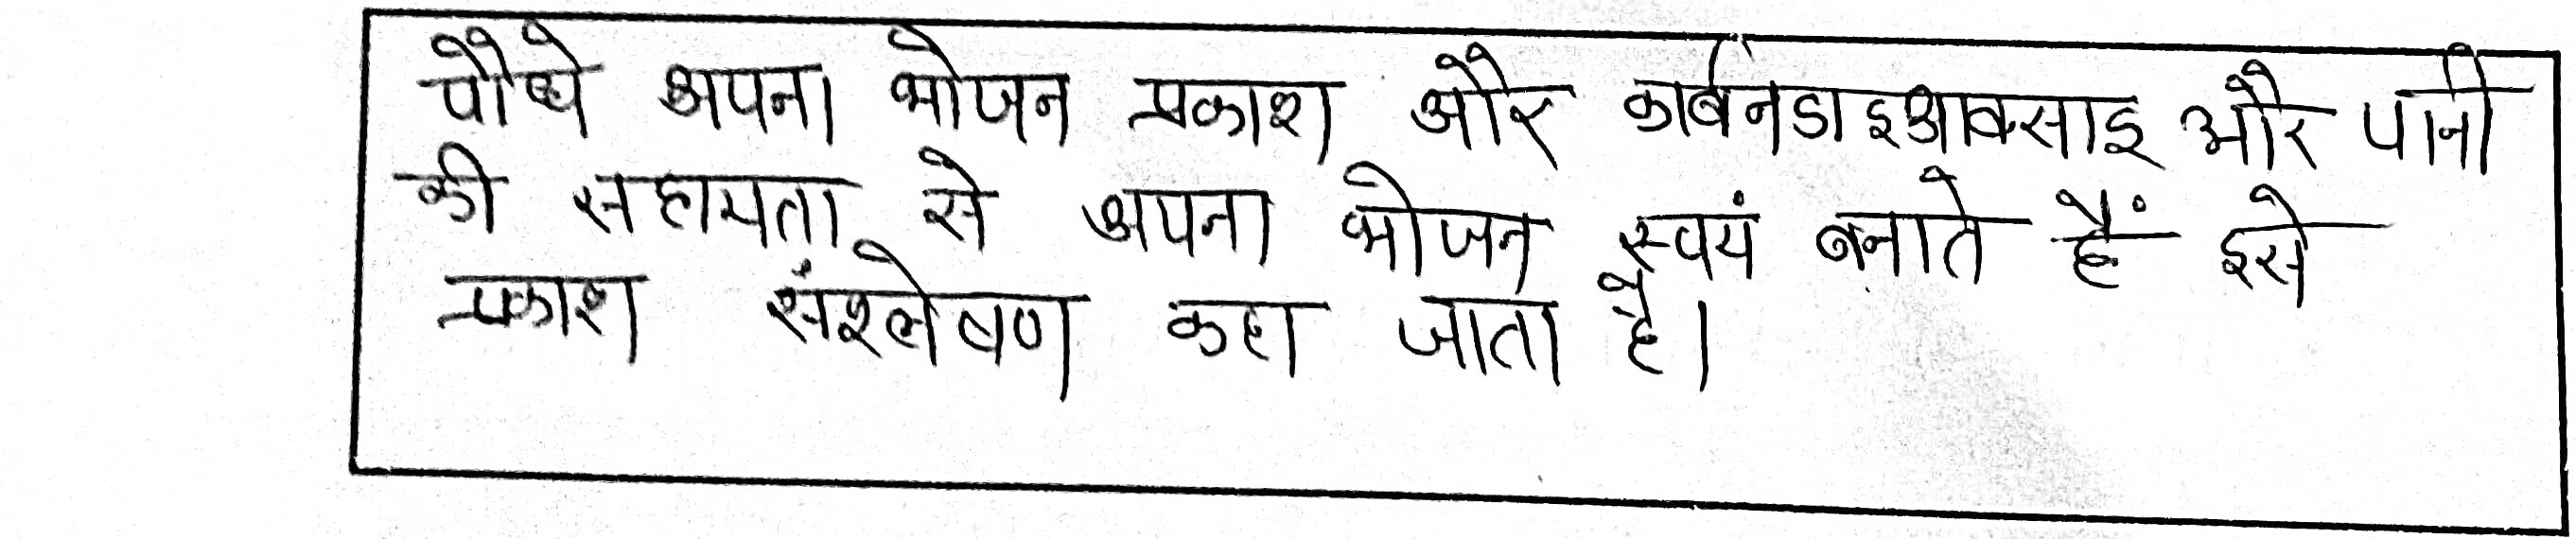 पौधे अपना भोजन प्रकाश और कार्बनडाइआक्साइ और पानी
की सहायता से अपना भोजन स्वयं बनाते हैं इसे
प्रकाश संश्लेषण कहा जाता है।